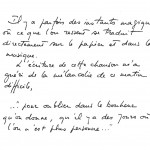 Il y a parfois des instants magiques
où ce que l'on ressent se traduit
directement sur le papier et dans la
musique.
L'écriture de cette chanson m'a
guéri de la mélancolie de ce matin
difficile,
..: pour oublier dans le bonheur
qu'on donne, qu'il y a des jours où
l'on n'est plus personne...